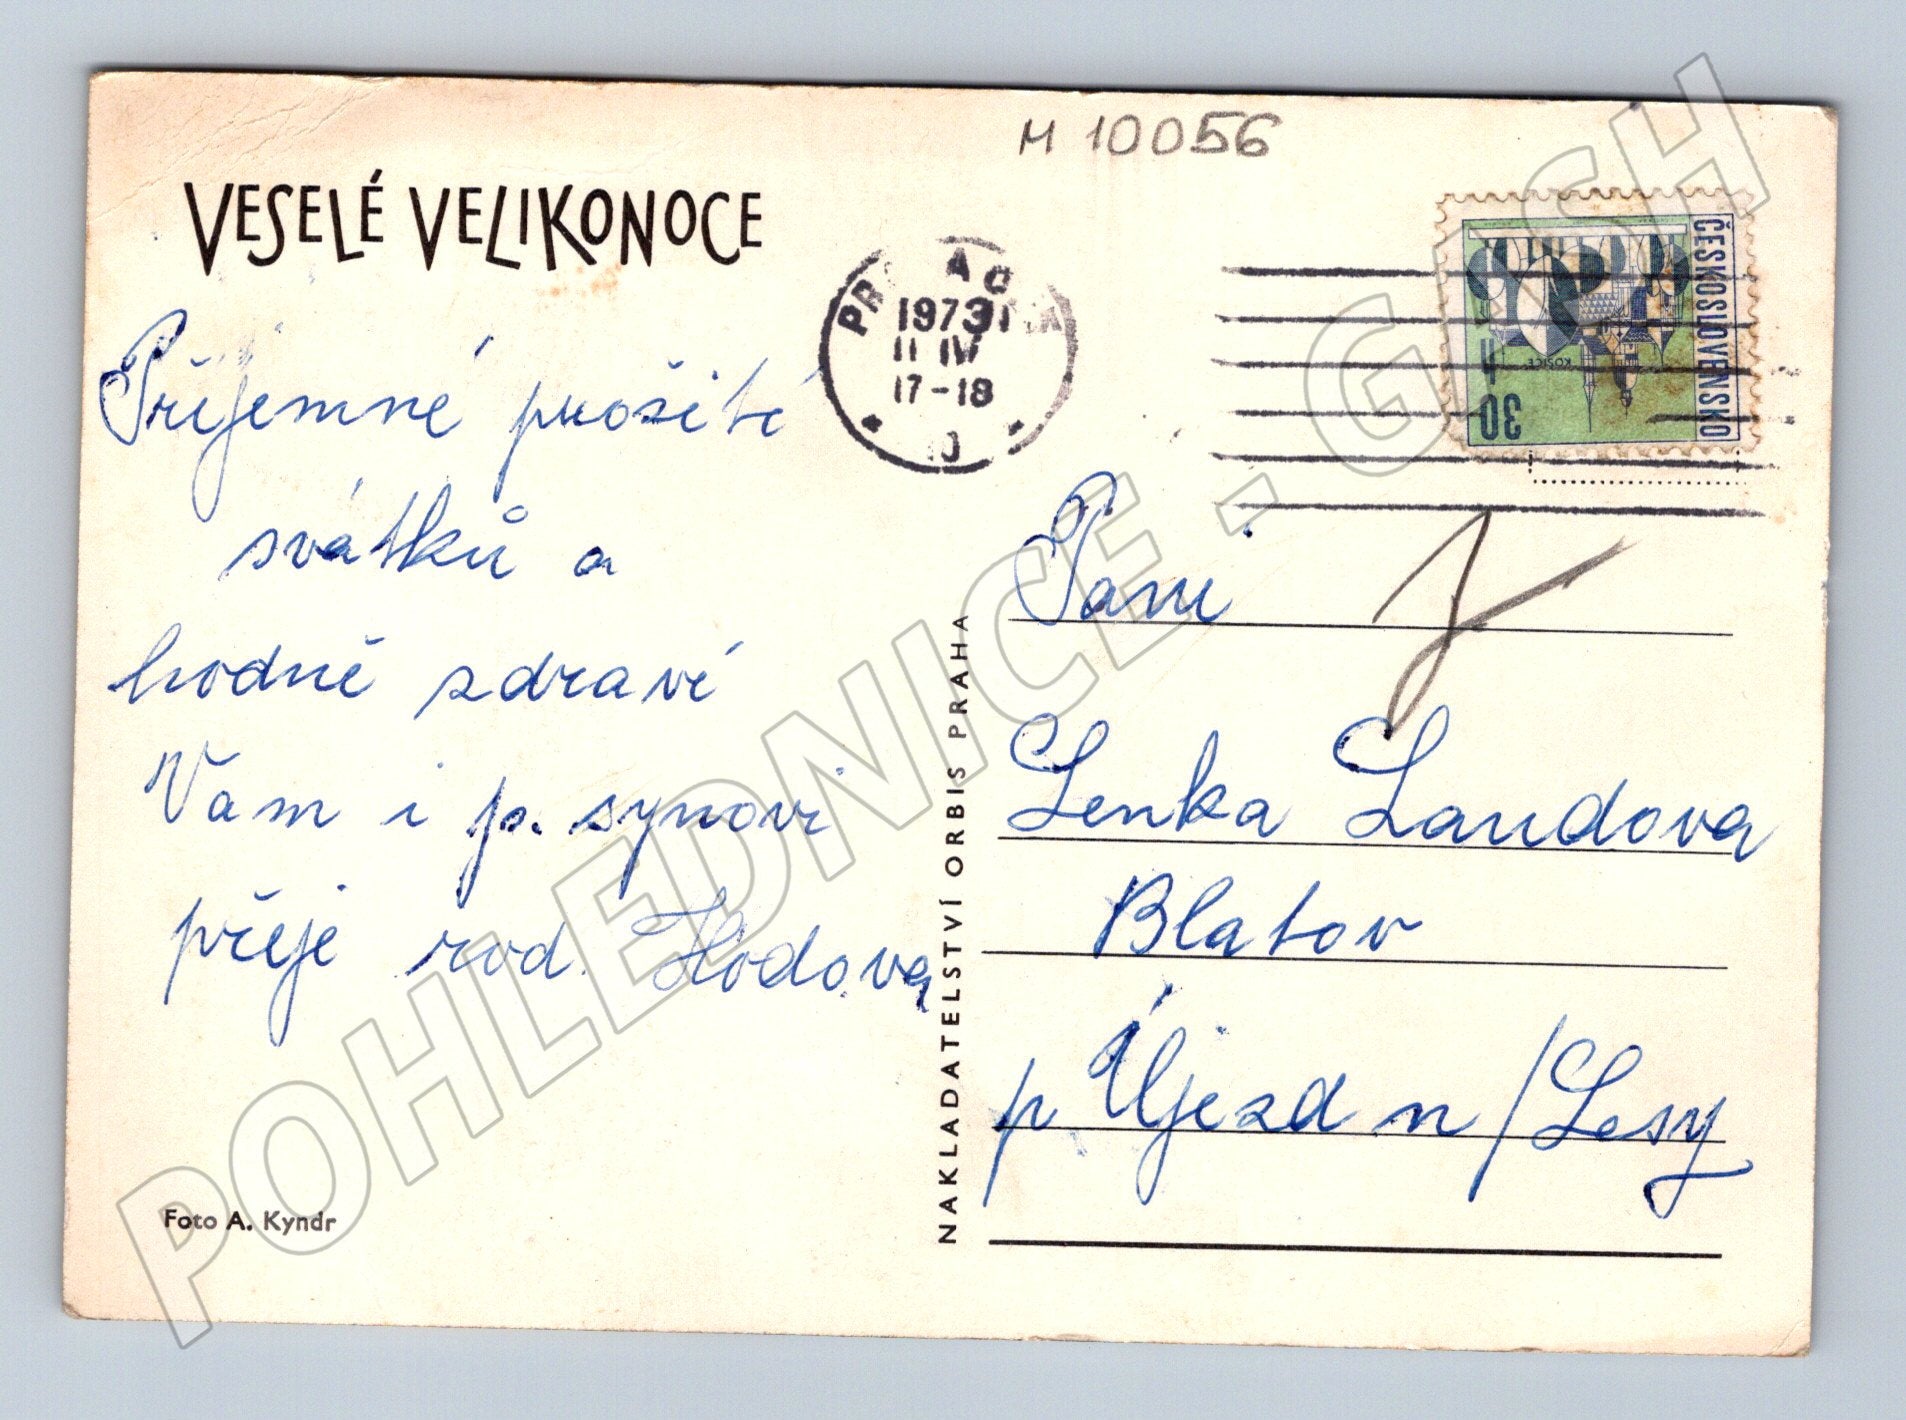 M 10056
VESELÉ VELIKONOCE
ČESKOSLOVENSKO
KOŠICE
30 H
1973
11 IV
17-18
10
Příjemné prožití
svátků a
hodně zdraví
Vám i p. synovi
přeje rod. Hodova
Foto A. Kyndr
NAKLADATELSTVÍ ORBIS PRAHA
Paní
Lenka Landova
Blatov
p Újezd n/Lesy
POHLEDNICE - GASH